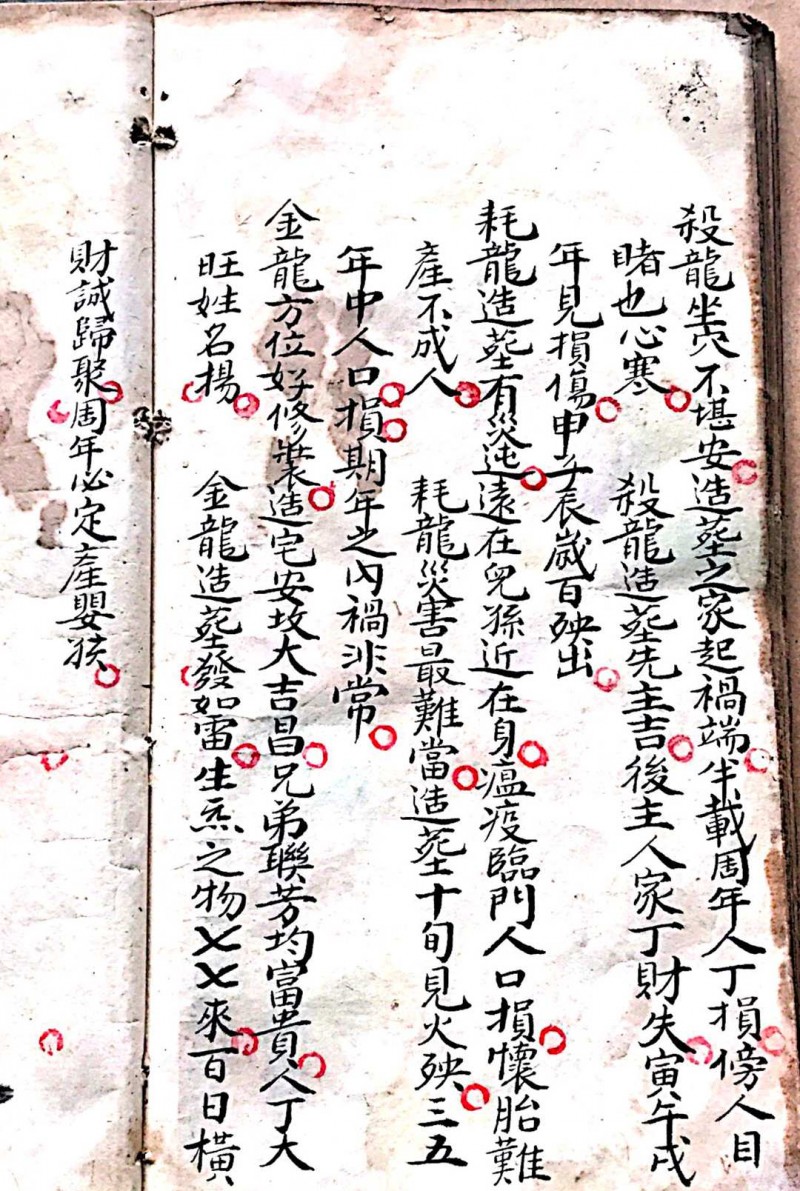 殺龍坐穴不堪安造塟之家起禍端半載周年人丁損傍人目
睹也心寒　殺龍造塟先主吉後主人家丁財失寅午戌
年見損傷申子辰歲百殃出
耗龍造塟有災迍遠在兒孫近在身瘟疫臨門人口損懷胎難
產不成人　耗龍災害最難當造塟十旬見火殃三五
年中人口損期年之內禍非常
金龍方位好修裝造宅安坟大吉昌兄弟聯芳均富貴人丁大
旺姓名揚　金龍造塟發如雷生炁之物乂乂來百日橫
財誠歸聚周年必定產嬰孩